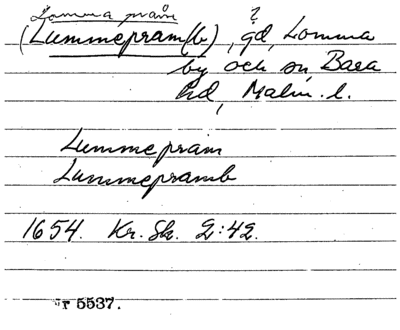 Lomma pråm
?
(Lummepram(b), gd, Lomma
by och sn, Bara
hd, Malm. l.
Lummepram
Lummepramb
1654. Kr. Sk. 2:42.
r 5537.